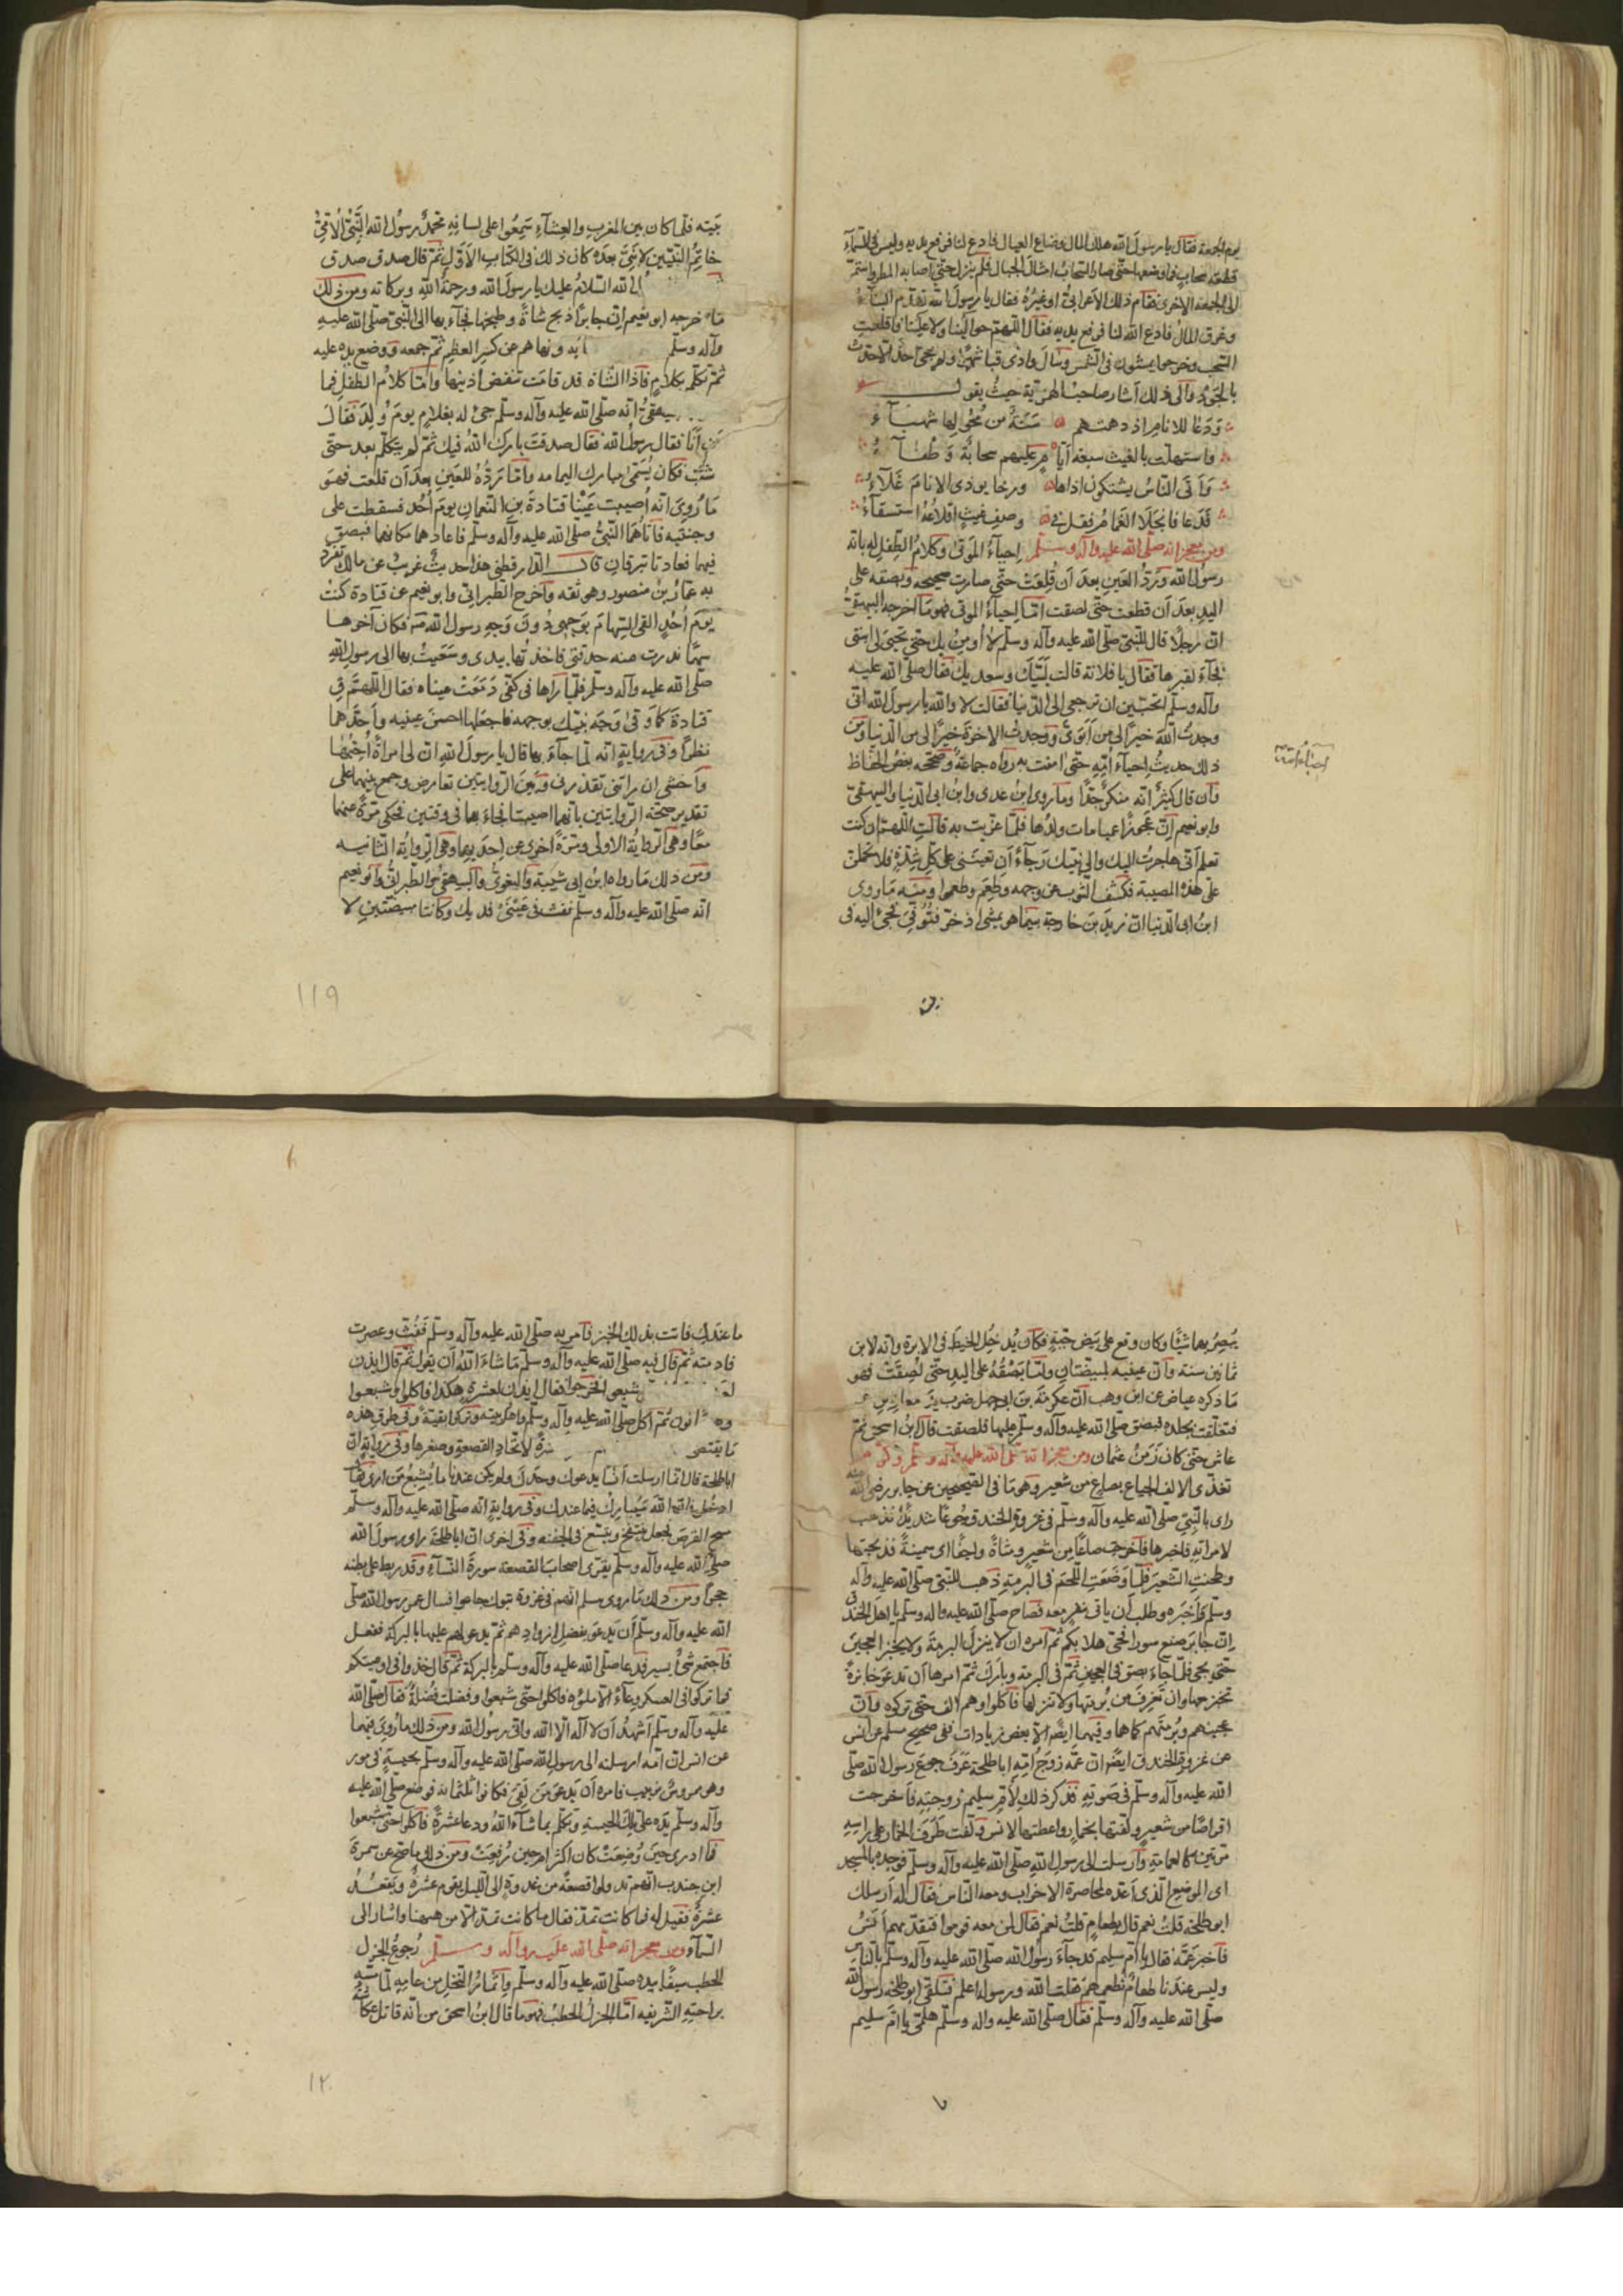 يوم الجمعة فقال يا رسول الله هلك المال وضاع العيال فادع لنا فرفع يديه وليس في السماء
قطعة سحاب فما وضعها حتى صار السحاب امثال الجبال فلم ينزل حتى اصابه المطر واستمر
الى الجمعة الاخرى فقام ذلك الاعرابي او غيره فقال يا رسول الله تهدم البناء
وغرق المال فادع الله لنا فرفع يديه فقال اللهم حوالينا ولا علينا فاقلعت
السحب وخرجوا يمشون في الشمس وسال وادى قناة شهرا ولم يجئ احد الا حدث
بالجود والى ذلك اشار صاحب الهمزية حيث يقول
ودعا للانام اذ دهمتهم سنة من محولها شهباء
واستهلت بالغيث سبعة ايام عليهم سحابة وطفاء
واتى الناس يشتكون اذاها ورخا يوذى الانام غلاء
فدعا فانجلا الغمام فقل في وصف غيث اقلاعه استسقاء
ومن معجزاته صلى الله عليه وآله وسلم إحياء الموتى وكلام الطفل له بانه
رسول الله ورد العين بعد ان قلعت حتى صارت صحيحة وبصقه على
اليد بعد ان قطعت حتى لصقت اما إحياء الموتى فهو ما اخرجه البيهقي
ان رجلا قال للنبي صلى الله عليه وآله وسلم لا أومن بك حتى تحيى لى ابنتى
فجاء لقبرها فقال يا فلانة قالت لبيك وسعديك فقال صلى الله عليه
وآله وسلم اتحبين ان ترجعى الى الدنيا فقالت لا والله يا رسول الله انى
وجدت الله خيرا لى من أبوى ووجدت الاخرة خيرا لى من الدنيا ومن
ذلك حديث إحياء أمه حتى آمنت به رواه جماعة وصححه بعض الحفاظ
احياء أمه
وان قال كثير انه منكر جدا وما روى ابن عدى وابن ابى الدنيا والبيهقى
وابو نعيم ان عجوزا عميا مات ولدها فلما عزيت به قالت اللهم ان كنت
تعلم أنى هاجرت اليك والى نبيك رجاء أن تعيننى على كل شدة فلا تحملن
على هذه المصيبة فكشف الثوب عن وجهه وطعم وطعموا ومنه ما روى
ابن ابى الدنيا ان زيد بن خارجة بينما هو يمشى اذ خر فتوفى فجئ اليه فى
بيته فلما كان بين المغرب والعشاء سمعوا على لسانه محمد رسول الله النبي الأمى
خاتم النبيين لا نبى بعده كان ذلك فى الكتاب الأول ثم قال صدق صدق
الله السلام عليك يا رسول الله ورحمة الله وبركاته ومن ذلك
ما خرجه ابو نعيم ان جابرا ذبح شاة وطبخها فجاء بها الى النبي صلى الله عليه
وآله وسلم ونهاهم عن كسر العظم ثم جمعه ووضع يده عليه
ثم تكلم بكلام فاذا الشاة قد قامت تنفض أذنيها وأما كلام الطفل فما
انه صلى الله عليه وآله وسلم جئ له بغلام يوم ولد فقال
من أنا فقال رسول الله فقال صدقت بارك الله فيك ثم لم يتكلم بعد حتى
شب فكان يسمى مبارك اليمامه وأما رده للعين بعد أن قلعت فهو
ما روى انه أصيبت عينا قتادة بن النعمان يوم أحد فسقطت على
وجنتيه فاتاهما النبي صلى الله عليه وآله وسلم فاعادهما مكانهما فبصق
فيهما فعادتا تبرقان قال الدارقطنى هذا حديث غريب عن مالك تفرد
به عمار بن منصور وهو ثقه وأخرج الطبرانى وابو نعيم عن قتادة كنت
يوم أحد اتقى السهام بوجهى دون وجه رسول الله فكان آخرها
سهما ندرت منه حدقتى فاخذتها بيدى وسعيت بها الى رسول الله
صلى الله عليه وآله وسلم فلما رآها فى كفى دمعت عيناه فقال اللهم ق
قتادة كما وقى وجه نبيك بوجهه فاجعلها احسن عينيه وأحدهما
نظرا وفى رواية انه لما جاء بها قال يا رسول الله ان لى امرأة أحبها
وأخشى ان رأتنى تقذرنى وبين الروايتين تعارض وجمع بينهما على
تقدير صحة الروايتين بانهما اصيبتا فجاء بهما فى وقتين فحكى مرة عنهما
معا وهى الرواية الاولى ومرة أخرى عن إحديهما وهى الرواية الثانيه
ومن ذلك ما رواه ابن ابى شيبة والبغوى والبيهقى والطبرانى وابو نعيم
انه صلى الله عليه وآله وسلم نفث فى عينى فديك وكانتا مبيضتين لا
١١٩
يبصر بهما شيئا وكان وقع على بيض حية فكان يدخل الخيط فى الابرة وانه لابن
ثمانين سنة وان عينيه لمبيضتان وأما بصقه على اليد حتى لصقت فهو
ما ذكره عياض عن ابن وهب ان عكرمة بن ابى جهل ضرب يد معاذ بن
فتعلقت بجلده فبصق صلى الله عليه وآله وسلم عليها فلصقت قال ابن اسحق ثم
عاش حتى كان زمن عثمان ومن معجزاته صلى الله عليه وآله وسلم
تغذى الالف الجياع بصاع من شعير وهو ما فى الصحيحين عن جابر رضى الله عنه
راى بالنبي صلى الله عليه وآله وسلم فى غزوة الخندق جوعا شديدا فذهب
لامراته فاخبرها فأخرجت صاعا من شعير وشاة واجنا اى سمينة فذبحتها
وطحنت الشعير فلما وضعت اللحم فى البرمة ذهب للنبي صلى الله عليه وآله
وسلم وأخبره وطلب أن ياتى بنفر معه فصاح صلى الله عليه واله وسلم يا اهل الخندق
ان جابر صنع سورا فحى هلا بكم ثم أمره ان لا ينزل البرمة ولا يخبز العجين
حتى يجى فلما جاء بصق فى العجين ثم فى البرمة وبارك ثم امرها أن تدعو خابزة
تخبز معها وان تغرف من برمتها ولا تنزلها فأكلوا وهم الف حتى تركوه وان
عجينهم وبرمتهم كما هما وفيهما ايضا الا بعض زيادات ففى صحيح مسلم عن انس
عن غزوة الخندق ايضا ان عمه زوج أمه ابا طلحة عرف جوع رسول الله صلى
الله عليه وآله وسلم فى صوته فذكر ذلك لأم سليم زوجته فأخرجت
اقراصا من شعير ولفتها بخمار واعطتها لانس ولفت طرف الخمار على راسه
مرتين كالعمامة وأرسلته الى رسول الله صلى الله عليه وآله وسلم فوجده بالمسجد
اى الموضع الذى أعده لمحاصرة الاحزاب ومعه الناس فقال له أرسلك
ابو طلحة قلت نعم قال بطعام قلت نعم فقال لمن معه قوموا فتقدمهم أنس
فأخبر عمه فقال يا أم سليم قد جاء رسول الله صلى الله عليه وآله وسلم بالناس
وليس عندنا طعام نطعمهم فقلت الله ورسوله اعلم فتلقى ابو طلحة رسول الله
صلى الله عليه وآله وسلم فقال صلى الله عليه واله وسلم هلمى يا أم سليم
ما عندك فاتت بذلك الخبز فأمر به صلى الله عليه وآله وسلم ففت وعصرت
فادمته ثم قال فيه صلى الله عليه وآله وسلم ما شاء الله أن يقول ثم قال ايذن
فقال ايذن لعشرة هكذا فاكلوا وشبعوا
ثم أكل صلى الله عليه وآله وسلم واهل بيته وتركوا بقية وفى طرق هذه
ما يقتضى لاتحاد القصعة وصغرها وفى رواية ان
ابا طلحة قال انما ارسلت أنسا يدعوك وحدك ولم يكن عندنا ما يشبع من ارى فقال
ادخل فان الله سيبارك فيما عندك وفى رواية انه صلى الله عليه وآله وسلم
مسح القرص فجعل ينتفخ ويتسع فى الجفنه وفى اخرى ان ابا طلحة راى رسول الله
صلى الله عليه وآله وسلم يقرى اصحاب القصعة سورة النساء وقد ربط على بطنه
حجرا ومن ذلك ما روى مسلم انهم فى غزوة تبوك جاعوا فسال عمر رسول الله صلى
الله عليه وآله وسلم أن يدعو بفضل ازوادهم ثم يدعو لهم عليها بالبركة ففعل
فأجتمع شئ يسير فدعا صلى الله عليه وآله وسلم بالبركة ثم قال خذوا فى اوعيتكم
فما تركوا فى العسكر وعاء الا ملؤه فاكلوا حتى شبعوا وفضلت فضلة فقال صلى الله
عليه وآله وسلم أشهد أن لا اله الا الله وانى رسول الله ومن ذلك ما روى فيهما
عن انس ان امه ارسلته الى رسول الله صلى الله عليه وآله وسلم بحيسة فى تور
فامره أن يدعو من لقى فكانوا ثلثمائة فوضع صلى الله عليه
وآله وسلم يده على تلك الحيسة وتكلم بما شاء الله ودعا عشرة فأكلوا حتى شبعوا
فما ادرى حين وضعت كان اكثر ام حين رفعت ومن ذلك ما صح عن سمرة
ابن جندب انهم تداولوا قصعة من غدوة الى الليل يقوم عشرة ويقعد
عشرة فقيل له فما كانت تمد فقال ما كانت تمد الا من ههنا واشار الى
السماء ومن معجزاته صلى الله عليه وآله وسلم رجوع الجزل
الحطب سيفا بيده صلى الله عليه وآله وسلم وإثمار النخل من عامه لما مسه
براحته الشريفه اما الجزل الحطب فهو ما قال ابن اسحق من انه قاتل عكاشة
١٢٠